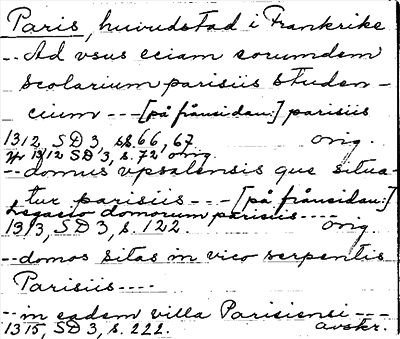 Paris, huvudstad i Frankrike
-- Ad usus eciam eorumdem
scolarium parisiis studen-
cium --- [på frånsidan:] parisiis
1312, SD 3, s. 66, 67. orig.
1312 SD 3, s. 72 orig.
-- domus vpsalensis que situa-
tur parisiis --- [på frånsidan:]
legacio domorum parisiis ----
1313, SD 3, s. 122. orig.
-- domos sitas in vico serpentis
Parisiis ----
-- in eadem villa Parisiensi ---
1315, SD 3, s. 222. avskr.